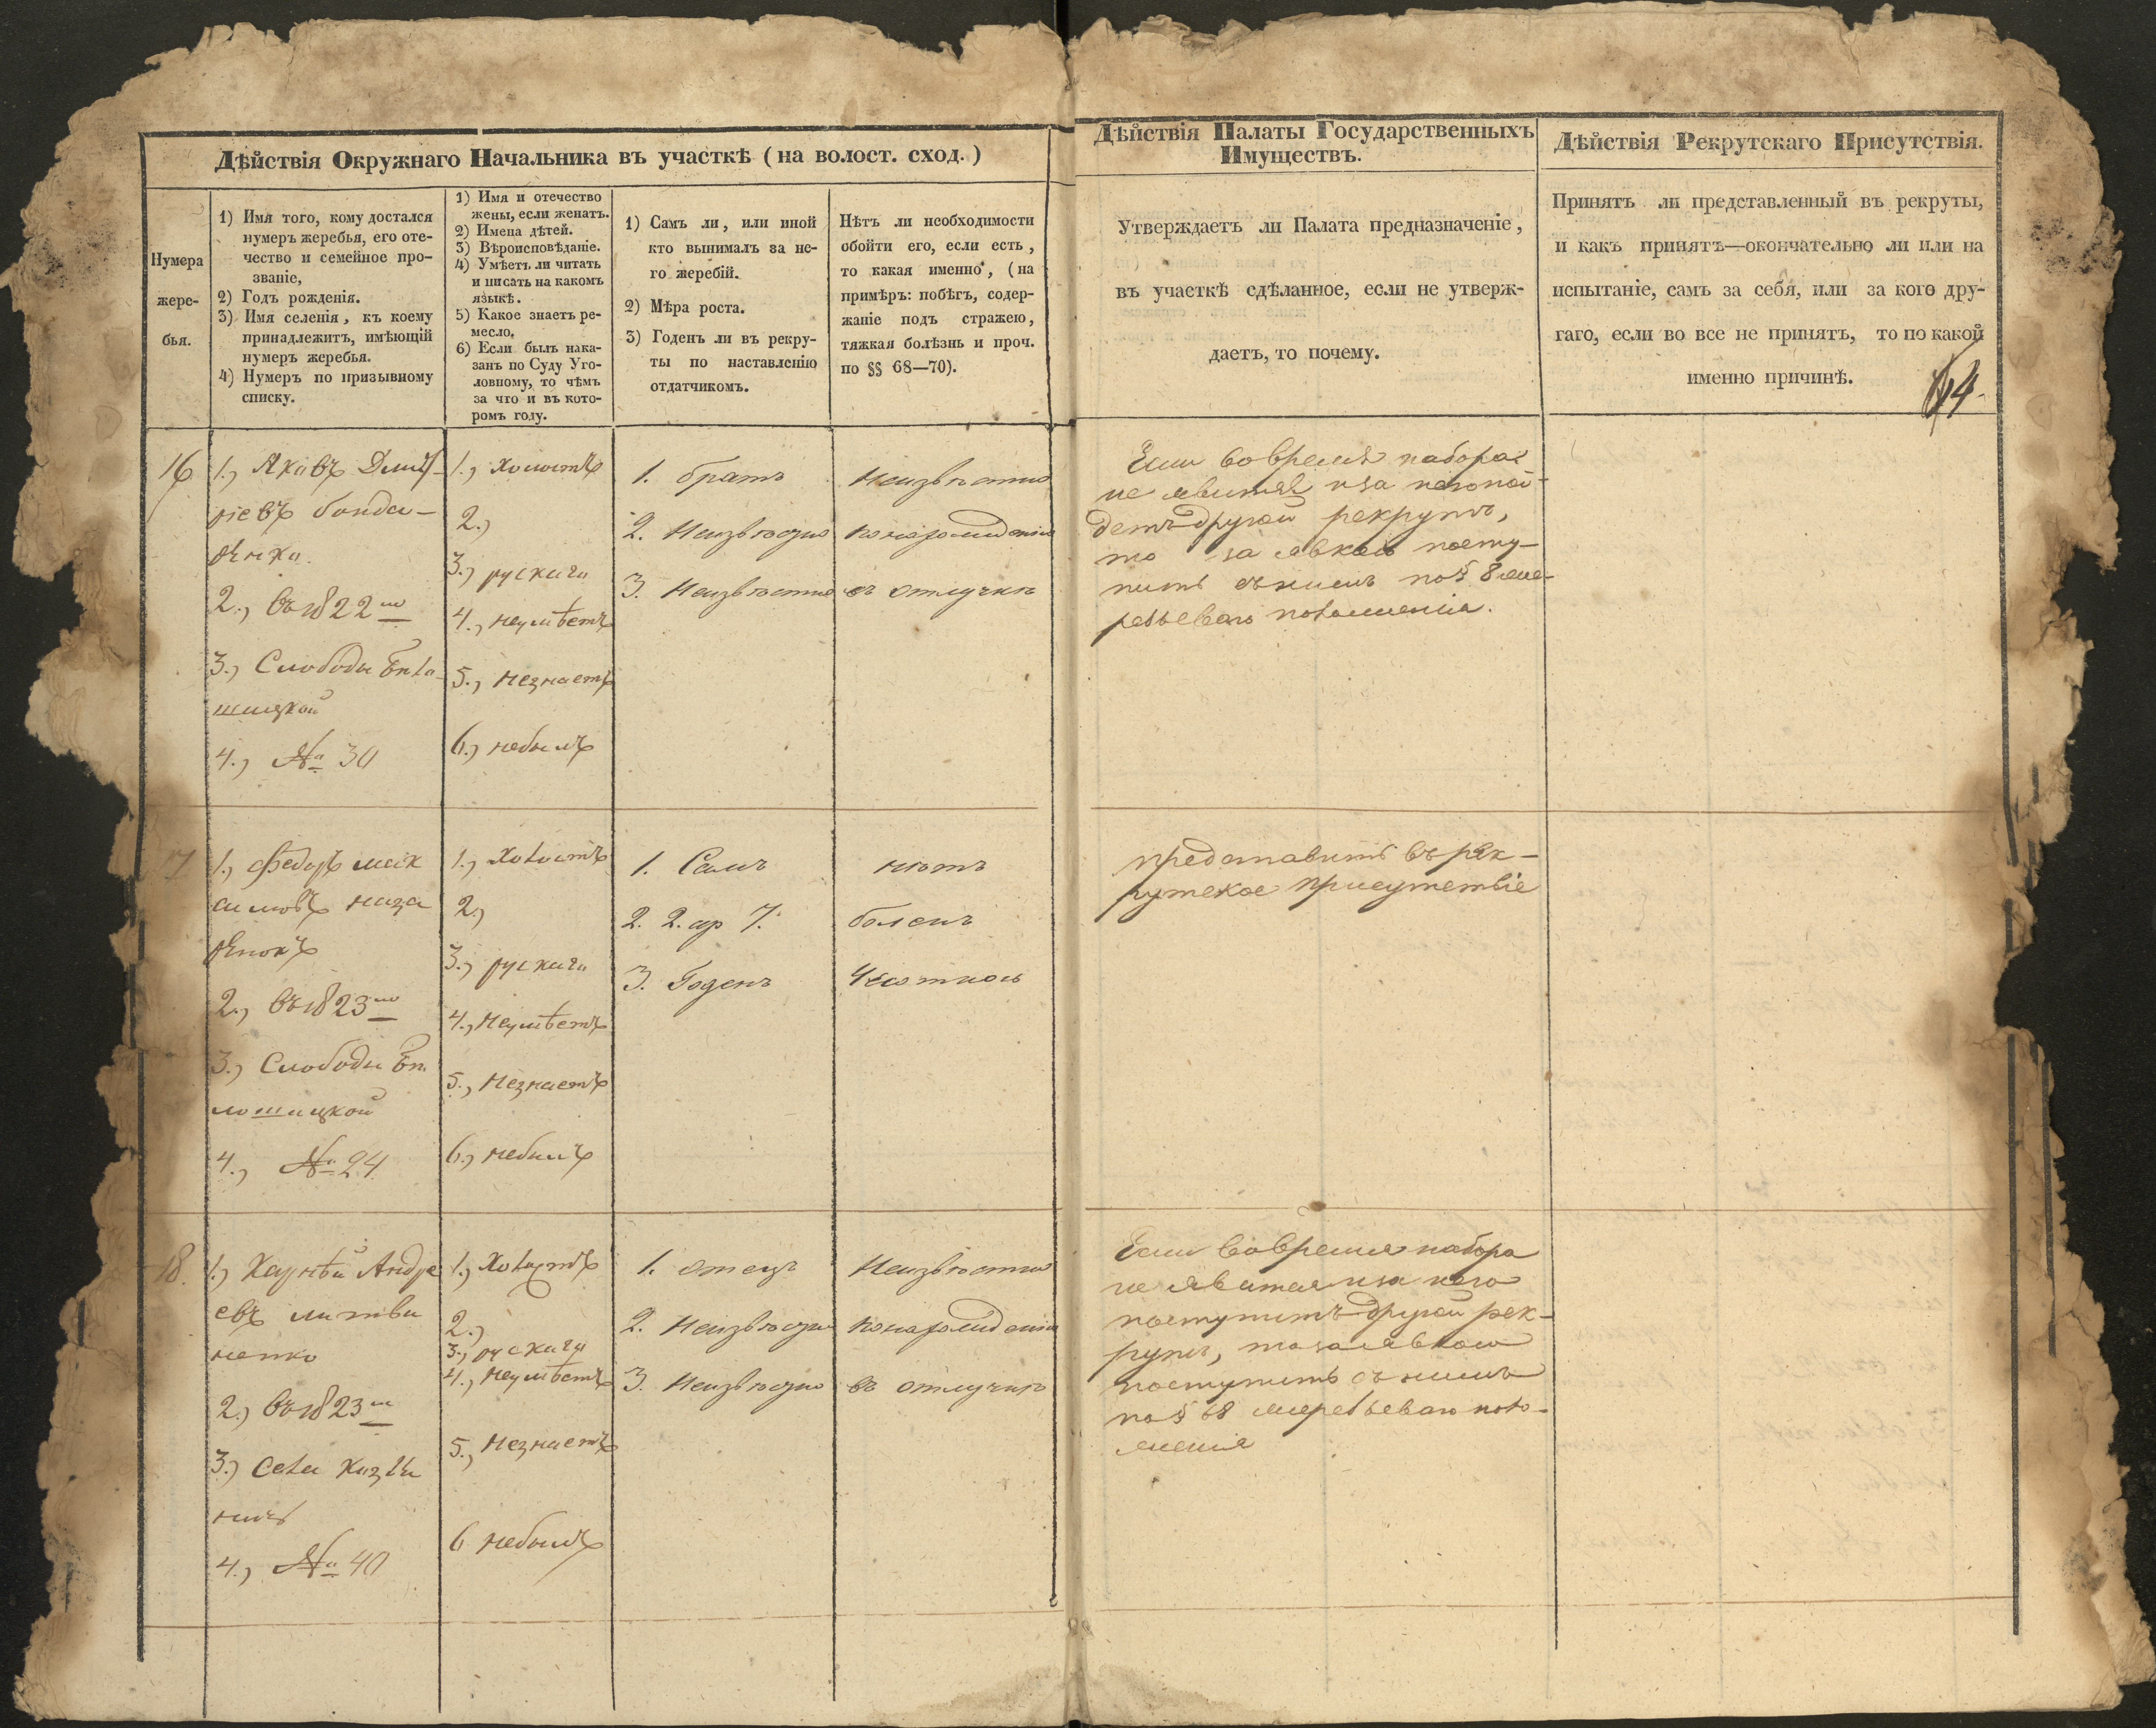 Дѣйствія Окружнаго Начальника въ участкѣ (на волост. сход.)
Нумера
жере-
бья.
1) Имя того, кому достался
нумеръ жеребья, его оте-
чество и семейное про-
званіе,
2) Годъ рожденія.
3) Имя селенія, къ коему
принадлежитъ, имѣющій
нумеръ жеребья.
4) Нумеръ по призывному
списку.
1) Имя и отечество
жены, если женатъ.
2) Имена дѣтей.
3) Вѣроисповѣданіе.
4) Умѣетъ ли читать
и писать на какомъ
языкѣ.
5) Какое знаетъ ре-
месло.
6) Если былъ нака-
занъ по Суду Уго-
ловному, то чѣмъ
за что и въ кото-
ромъ году.
1) Самъ ли, или иной
кто вынималъ за не-
го жеребій.
2) Мѣра роста.
3) Годенъ ли въ рекру-
ты по наставленію
отдатчикомъ.
Нѣтъ ли необходимости
обойти его, если есть,
то какая именно, (на
примѣръ: побѣгъ, содер-
жаніе подъ стражею,
тяжкая болѣзнь и проч.
по §§ 68—70).
Дѣйствія Палаты Государственныхъ
Имуществъ.
Утверждаетъ ли Палата предназначеніе,
въ участкѣ сдѣланное, если не утверж-
даетъ, то почему.
Дѣйствія Рекрутскаго Присутствія.
Принятъ ли представленный въ рекруты,
и какъ принятъ—окончательно ли или на
испытаніе, самъ за себя, или за кого дру-
гаго, если во все не принятъ, то по какой
именно причинѣ.
16
1., Яковъ Дмит-
ріевъ бонда-
ренко.
2., Въ 1822
3., Слободы
4., № 30
1., Холостъ
2.,
3., рускаго
4., неумѣетъ
5., Незнаетъ
6., небылъ
1. братъ
2. Неизвѣстно
3. Неизвѣстно
Неизвѣстно
въ отлучкѣ
Если вовремя набора
не явится и за него
детъ другой рекрутъ,
то за явкою посту-
пить съ нимъ по §
ребьеваго положенія.
17
1., Федоръ мак
симовъ наза
ренокъ
2., Въ 1823
3., Слободы
лошицкой
4., № 24
1., Холостъ
2.,
3., рускаго
4., Неумѣетъ
5., Незнаетъ
6., небылъ
1. Самъ
2. 2. ар 7.
3. Годенъ
нѣтъ
боленъ
представить въ рек-
рутское присутствіе
18.
1.) Андре
евъ литви
ненко
2.) Въ 1823
3.) Села
4., № 40
1., Холостъ
2.,
3., рускаго
4., Неумѣетъ
5., Незнаетъ
6 небылъ
1. отецъ
2. Неизвѣстно
3. Неизвѣстно
Неизвѣстно
въ отлучкѣ
Если вовремя набора
не явится и за него
поступитъ другой рек-
рутъ, то за явкою
поступить съ нимъ
по § 68 жеребьеваго поло-
женія